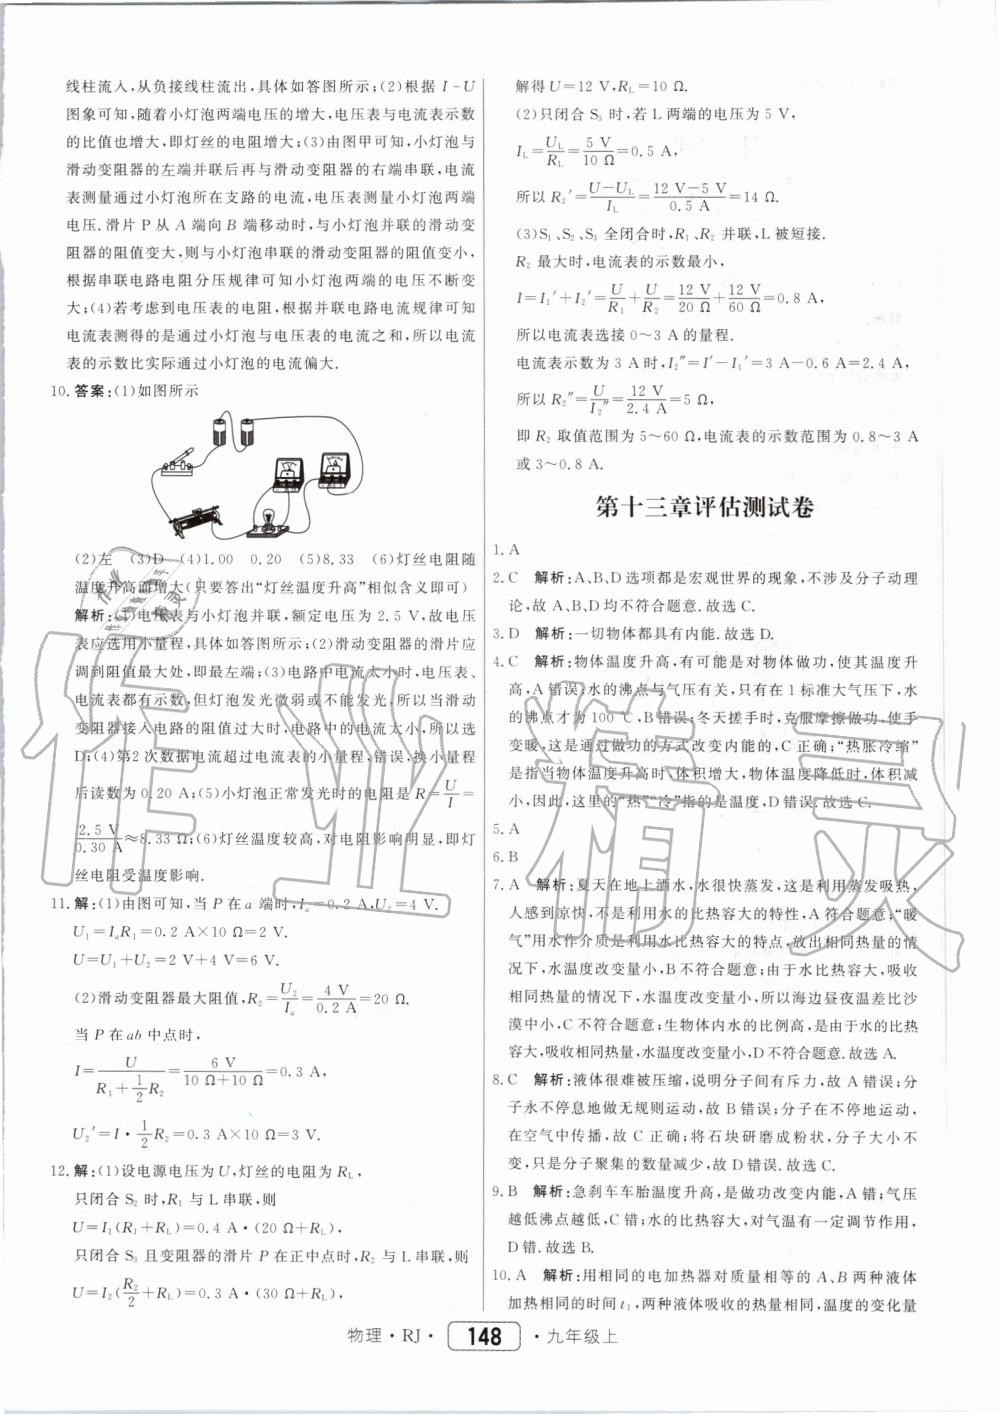 线柱流入,从负接线柱流出,具体如答图所示;(2)根据 I-U
图象可知,随着小灯泡两端电压的增大,电压表与电流表示数
的比值也增大,即灯丝的电阻增大;(3)由图甲可知,小灯泡与
滑动变阻器的左端并联后再与滑动变阻器的右端串联,电流
表测量通过小灯泡所在支路的电流,电压表测量小灯泡两端
电压.滑片 P 从 A 端向 B 端移动时,与小灯泡并联的滑动变
阻器的阻值变大,则与小灯泡串联的滑动变阻器的阻值变小,
根据串联电路电阻分压规律可知小灯泡两端的电压不断变
大;(4)若考虑到电压表的电阻,根据并联电路电流规律可知
电流表测得的是通过小灯泡与电压表的电流之和,所以电流
表的示数比实际通过小灯泡的电流偏大.
10.答案:(1)如图所示
(2)左 (3)D (4)1.00 0.20 (5)8.33 (6)灯丝电阻随
温度升高而增大(只要答出“灯丝温度升高”相似含义即可)
解析:(1)电压表与小灯泡并联,额定电压为 2.5 V,故电压
表应选用小量程,具体如答图所示;(2)滑动变阻器的滑片应
调到阻值最大处,即最左端;(3)电路中电流太小时,电压表、
电流表都有示数,但灯泡发光微弱或不能发光,所以当滑动
变阻器接入电路的阻值过大时,电路中的电流太小,所以选
D;(4)第2次数据电流超过电流表的小量程,错误,换小量程
后读数为 0.20 A;(5)小灯泡正常发光时的电阻是 R=U/I=
2.5 V/0.30 A≈8.33 Ω;(6)灯丝温度较高,对电阻影响明显,即灯
丝电阻受温度影响.
11.解:(1)由图可知,当 P 在 a 端时,Iₐ=0.2 A,Uₐ=4 V.
U₁=IₐR₁=0.2 A×10 Ω=2 V.
U=U₁+U₂=2 V+4 V=6 V.
(2)滑动变阻器最大阻值,R₂=U₂/Iₐ=4 V/0.2 A=20 Ω.
当 P 在 ab 中点时,
I=U/(R₁+1/2 R₂)=6 V/(10 Ω+10 Ω)=0.3 A,
U₂′=I·1/2 R₂=0.3 A×10 Ω=3 V.
12.解:(1)设电源电压为 U,灯丝的电阻为 R_L,
只闭合 S₂ 时,R₁ 与 L 串联,则
U=I₁(R₁+R_L)=0.4 A·(20 Ω+R_L),
只闭合 S₃ 且变阻器的滑片 P 在正中点时,R₂ 与 L 串联,则
U=I₂(R₂/2+R_L)=0.3 A·(30 Ω+R_L),
解得 U=12 V,R_L=10 Ω.
(2)只闭合 S₃ 时,若 L 两端的电压为 5 V,
I_L=U_L/R_L=5 V/10 Ω=0.5 A,
所以 R₂′=(U-U_L)/I_L=(12 V-5 V)/0.5 A=14 Ω.
(3)S₁、S₂、S₃ 全闭合时,R₁、R₂ 并联,L 被短接.
R₂ 最大时,电流表的示数最小,
I=I₁′+I₂′=U/R₁+U/R₂=12 V/20 Ω+12 V/60 Ω=0.8 A,
所以电流表选接 0~3 A 的量程.
电流表示数为 3 A 时,I₂″=I′-I₁′=3 A-0.6 A=2.4 A,
所以 R₂″=U/I₂″=12 V/2.4 A=5 Ω,
即 R₂ 取值范围为 5~60 Ω,电流表的示数范围为 0.8~3 A
或 3~0.8 A.
第十三章评估测试卷
1.A
2.C 解析:A、B、D 选项都是宏观世界的现象,不涉及分子动理
论,故 A、B、D 均不符合题意.故选 C.
3.D 解析:一切物体都具有内能.故选 D.
4.C 解析:物体温度升高,有可能是对物体做功,使其温度升
高,A 错误;水的沸点与气压有关,只有在 1 标准大气压下,水
的沸点才为 100 ℃,B 错误;冬天搓手时,克服摩擦做功,使手
变暖,这是通过做功的方式改变内能的,C 正确;“热胀冷缩”
是指当物体温度升高时,体积增大,物体温度降低时,体积减
小,因此,这里的“热”“冷”指的是温度,D 错误.故选 C.
5.A
6.B
7.A 解析:夏天在地上洒水,水很快蒸发,这是利用蒸发吸热,
人感到凉快,不是利用水的比热容大的特性,A 符合题意;“暖
气”用水作介质是利用水比热容大的特点,放出相同热量的情
况下,水温度改变量小,B 不符合题意;由于水比热容大,吸收
相同热量的情况下,水温度改变量小,所以海边昼夜温差比沙
漠中小,C 不符合题意;生物体内水的比例高,是由于水的比热
容大,吸收相同热量,水温度改变量小,D 不符合题意.故选 A.
8.C 解析:液体很难被压缩,说明分子间有斥力,故 A 错误;分
子永不停息地做无规则运动,故 B 错误;分子在不停地运动,
在空气中传播,故 C 正确;将石块研磨成粉状,分子大小不
变,只是分子聚集的数量减少,故 D 错误.故选 C.
9.B 解析:急刹车车胎温度升高,是做功改变内能,A 错;气压
越低沸点越低,C 错;水的比热容大,对气温有一定调节作用,
D 错.故选 B.
10.A 解析:用相同的电加热器对质量相等的 A、B 两种液体
加热相同的时间 t₁,两种液体吸收的热量相同,温度的变化量
物理·RJ· 148 ·九年级上
作业精灵